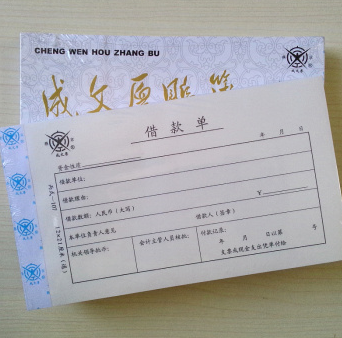 CHENG WEN HOU ZHANG BU
成文厚账簿
借款单
年 月 日
资金性质
借款单位:
借款理由:
借款数额: 人民币（大写） ¥
本单位负责人意见 借款人（签章）
机关领导批示: 会计主管人员核批: 付款记录:
年 月 日以第 号
支票或现金支出凭单付给